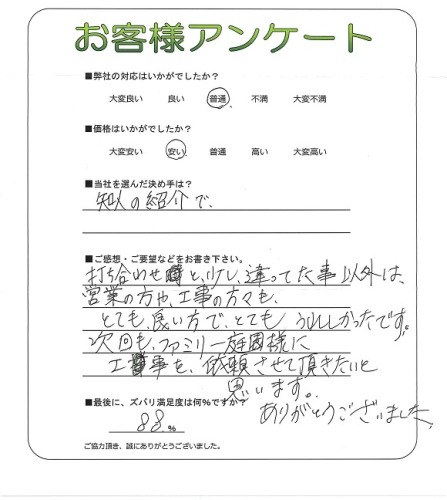 お客様アンケート
■弊社の対応はいかがでしたか？
大変良い 良い 普通 不満 大変不満
■価格はいかがでしたか？
大変安い 安い 普通 高い 大変高い
■当社を選んだ決め手は？
知人の紹介で、
■ご感想・ご要望などをお書き下さい。
打ち合わせ時と、少し、違ってた事以外は、
営業の方や、工事の方々も、
とても、良い方で、とても うれしかったです。
次回も、ファミリー庭園様に
工事を、依頼させて頂きたいと
思います。
ありがとうございました。
■最後に、ズバリ満足度は何%ですか？
88.%
ご協力頂き、誠にありがとうございました。